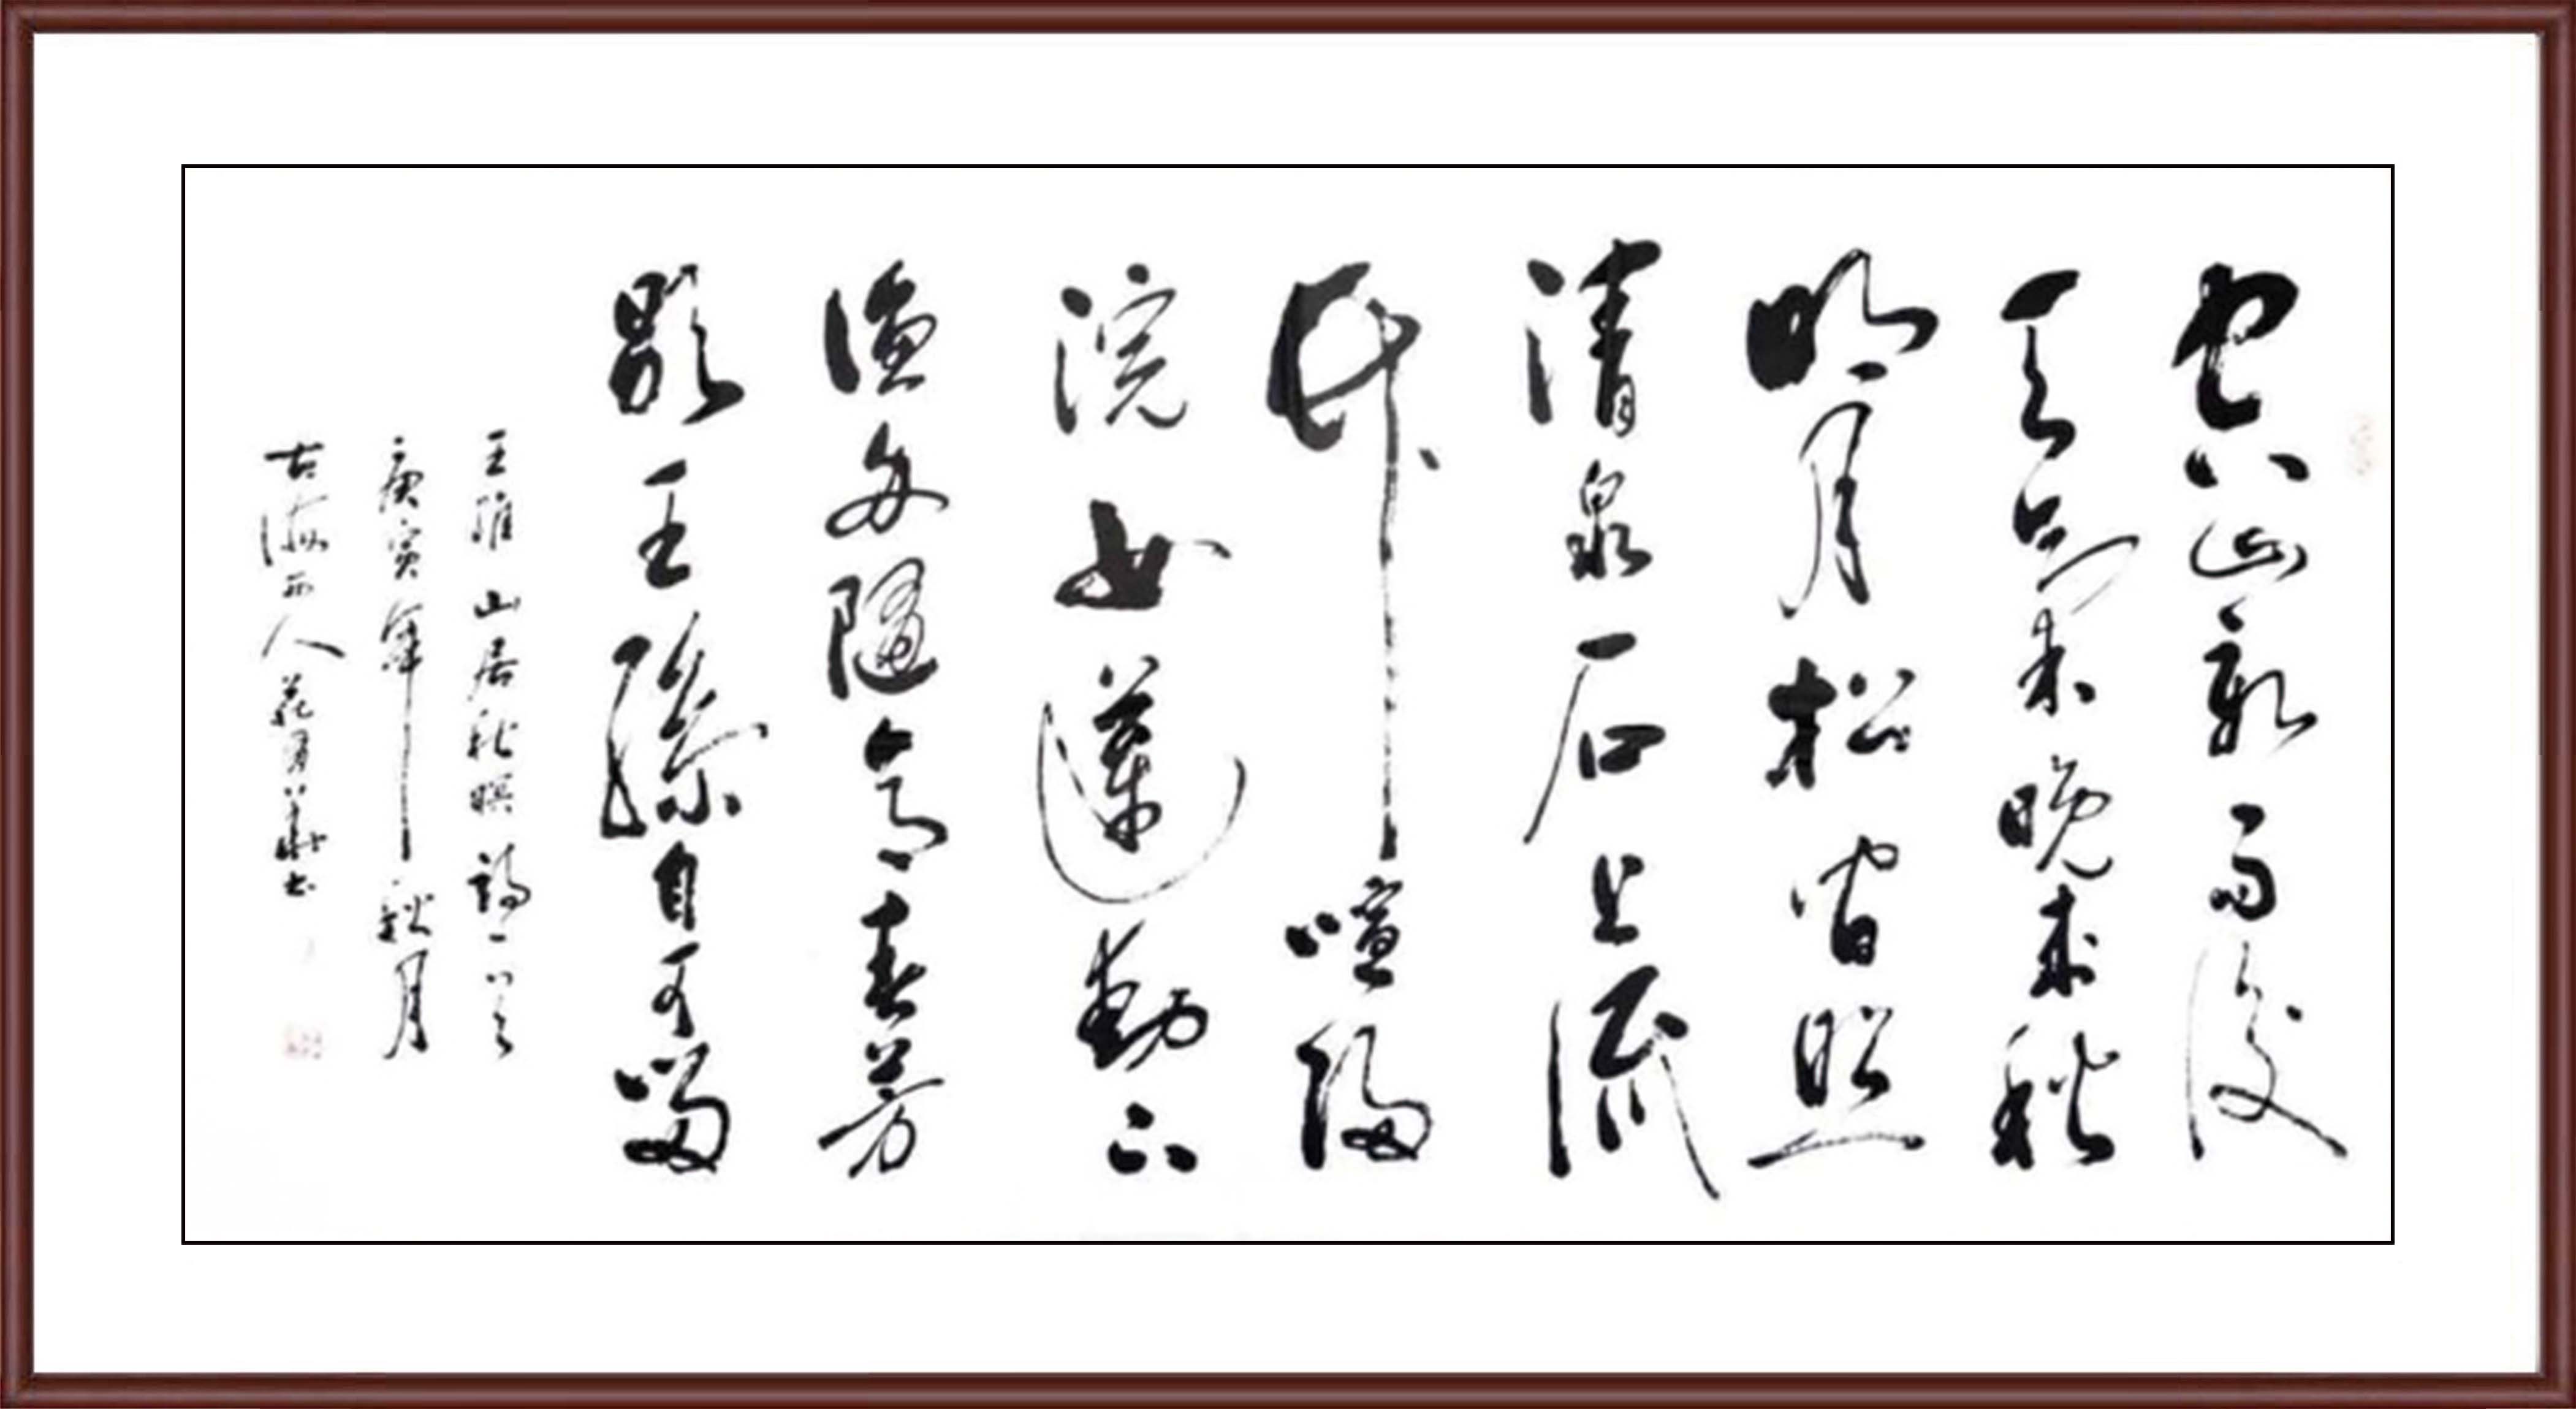 空山新雨後
天氣晚来秋
明月松間照
清泉石上流
竹喧歸
浣女蓮動下
漁舟隨意春芳
歇王孫自可留
王維山居秋暝詩一首
庚寅年秋月
古海西人書